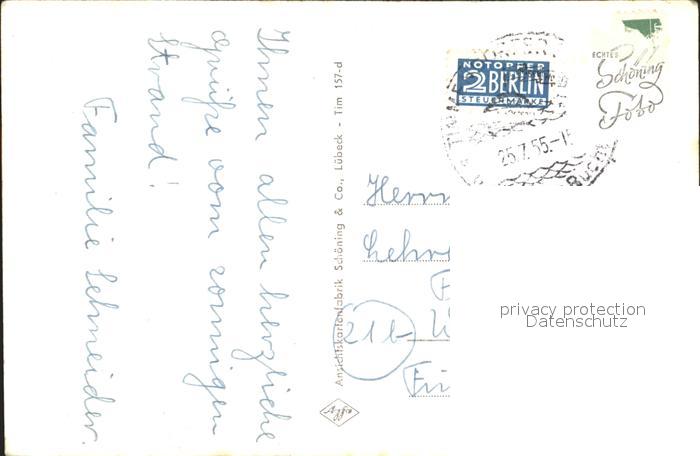 Ihnen allen herzliche
Grüße vom sonnigen
Strand!
Familie Schneider.
Ansichtskartenfabrik Schöning & Co., Lübeck - Tim 157-d
Agfa
NOTOPFER
2 BERLIN
STEUERMARKE
25.7.55.-1
ECHTES
Schöning
Foto
Herrn
Lehre
21b
privacy protection
Datenschutz